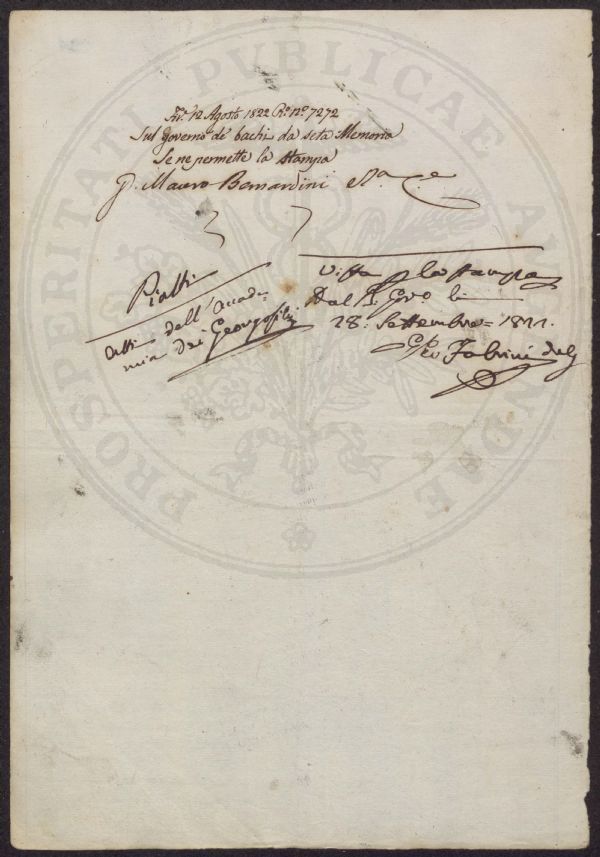 12 Agosto 1822 N.o 7272
Sul governo de' bachi da seta Memoria
Se ne permette la stampa
P. Mauro Bernardini
Piatti
Atti dell'Accade-
mia dei Georgofili
Vista la stampa
Dal R. Gov.o li
28. Settembre
Fabrini
PROSPERITATI PUBLICAE AUGENDAE